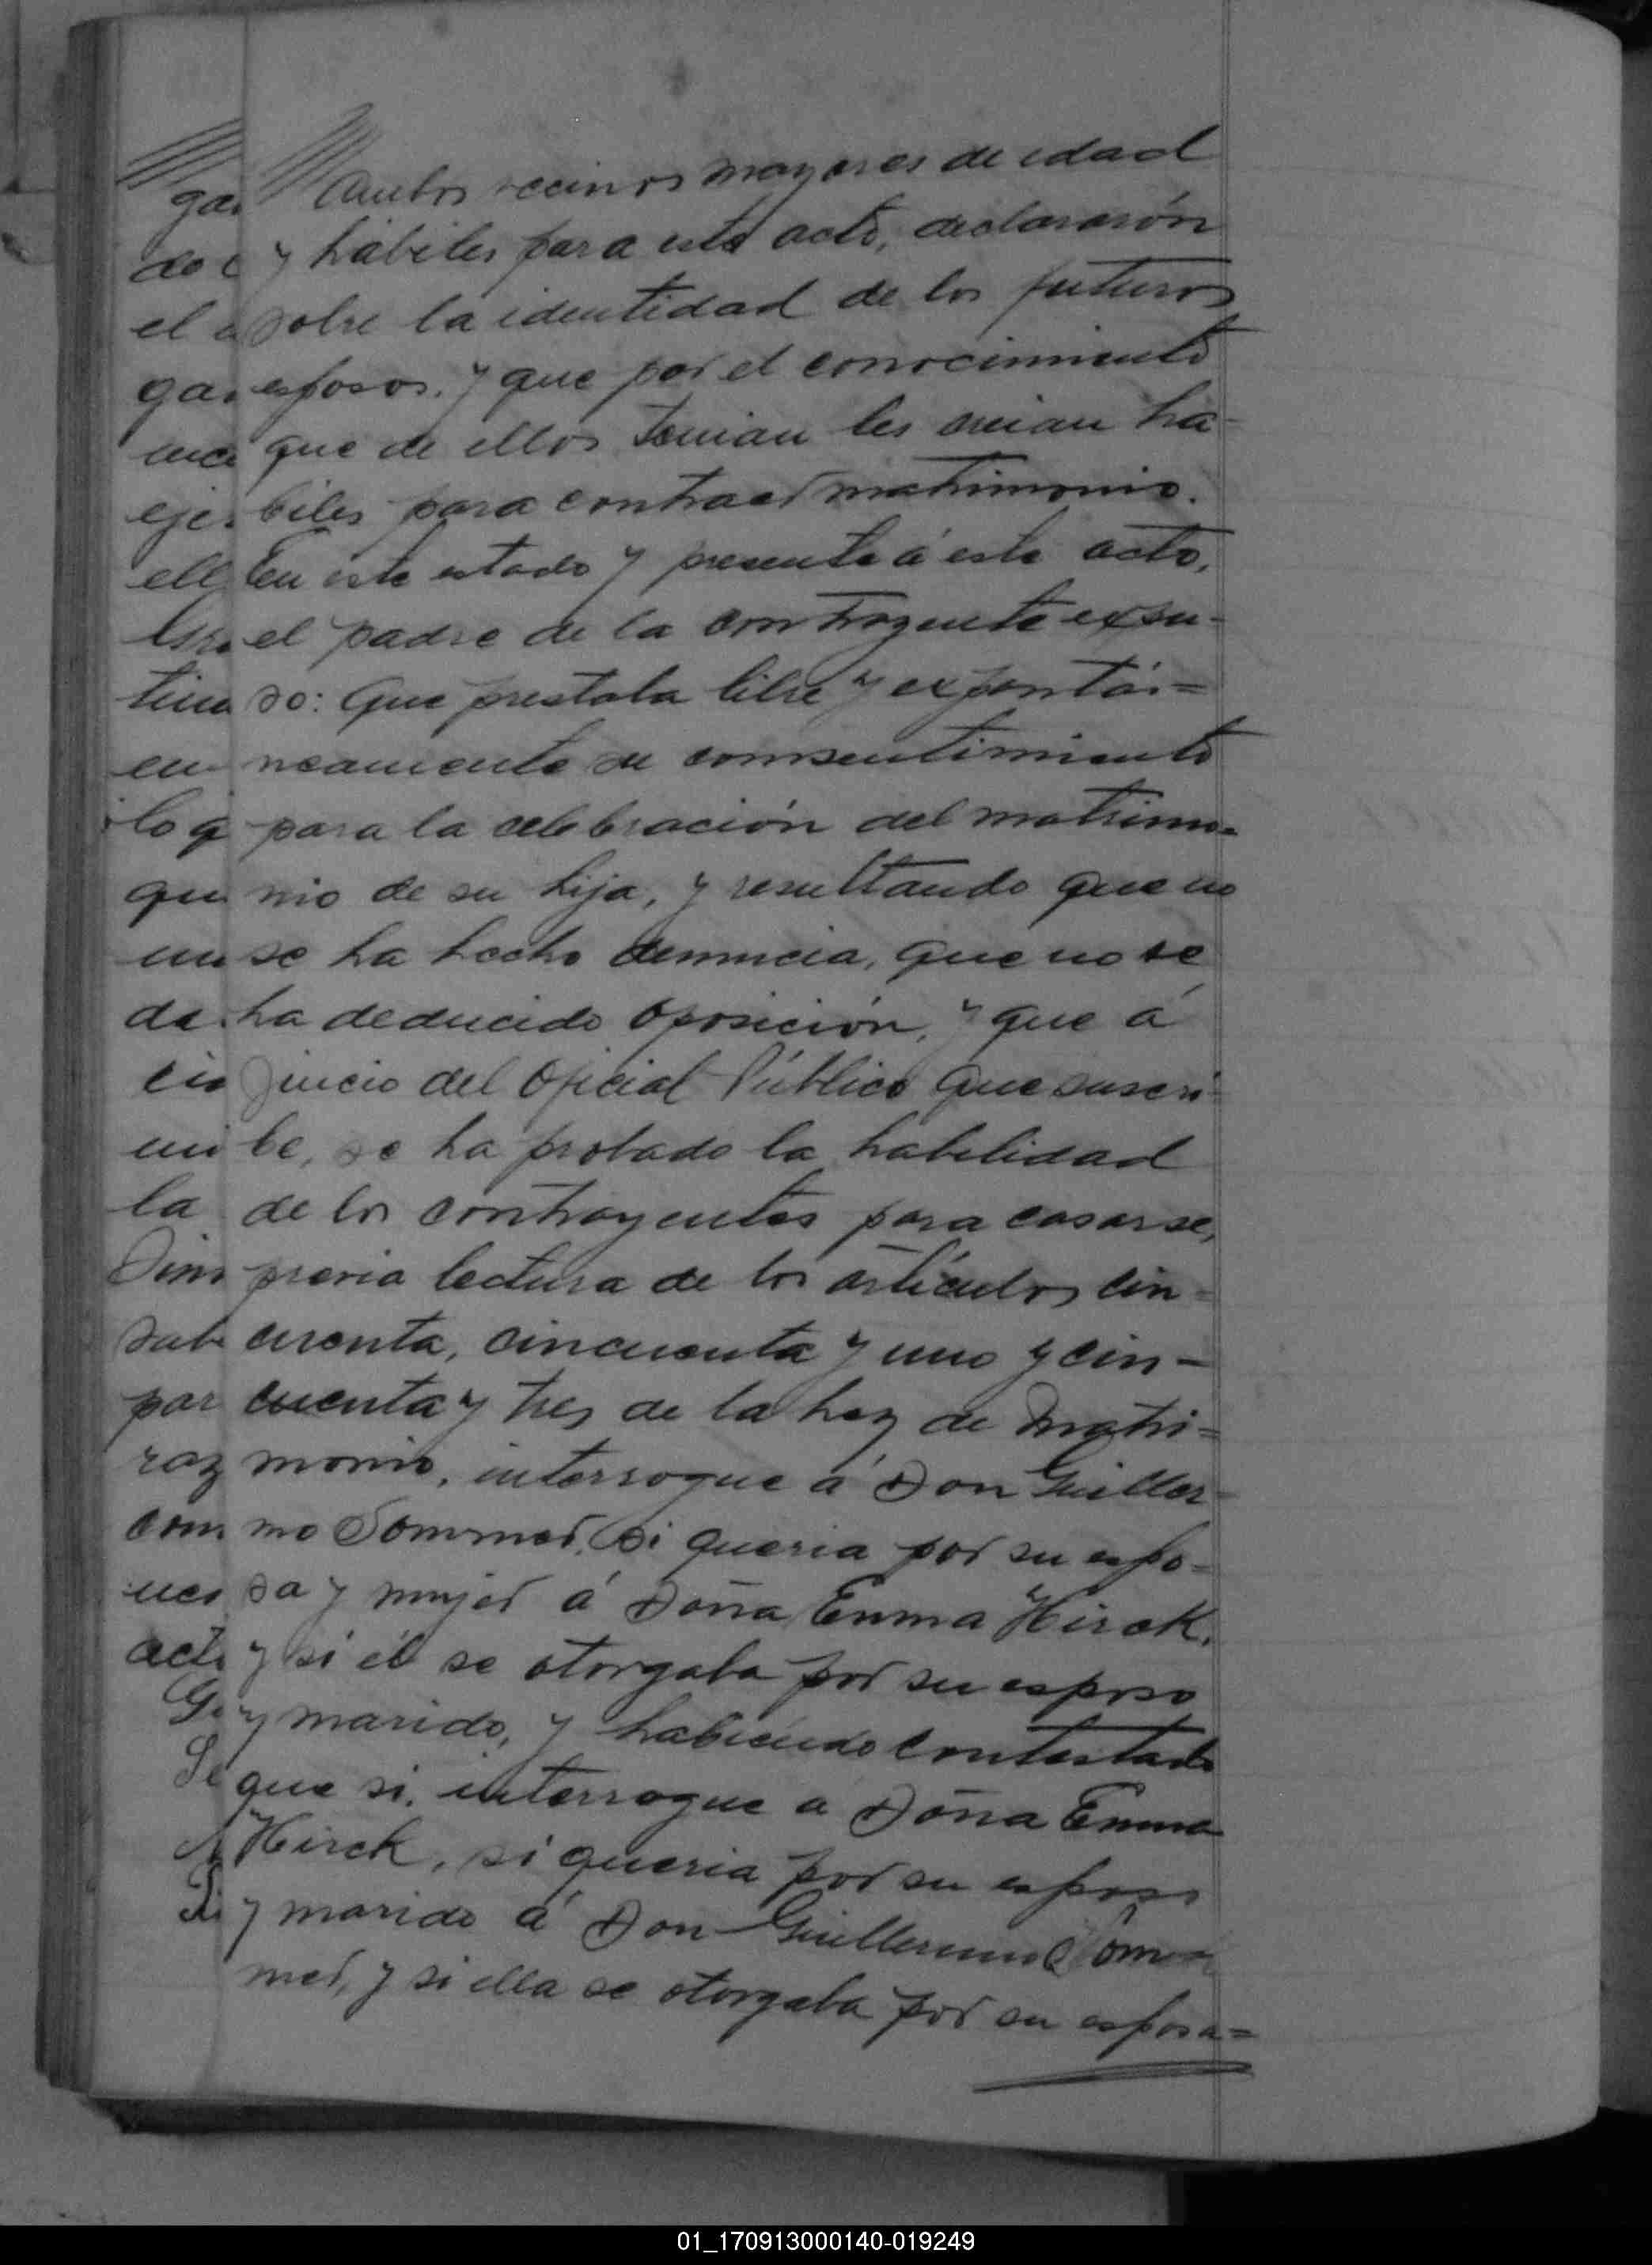 Ambos vecinos mayores de edad
y hábiles para este acto, declararón
sobre la identidad de los futuros
esposos, y que por el conocimiento
que de ellos tenian les creian ha-
biles para contraer matrimonio.
En este estado y presente á este acto,
el padre de la contrayente expu-
so: Que prestaba libre y expontá=
neamente su consentimiento
para la celebración del matrimo=
nio de su hija, y resultando que no
se ha hecho denuncia, que no se
ha deducido oposición, y que á
juicio del Oficial Público que suscri-
be, se ha probado la habilidad
de los contrayentes para casarse,
previa lectura de los artículos cin=
cuenta, cincuenta y uno y cin-
cuenta y tres de la Ley de Matri=
monio, interrogue á Don Guiller-
mo Sommer, si queria por su espo-
sa y mujer á Doña Emma Hirck,
y si él se otorgaba por su esposo
y marido, y habiendo contestado
que si, interrogue a Doña Emma
Hirck, si queria por su esposo
y marido á Don Guillermo Som-
mer, y si ella se otorgaba por su esposa=
01_170913000140-019249